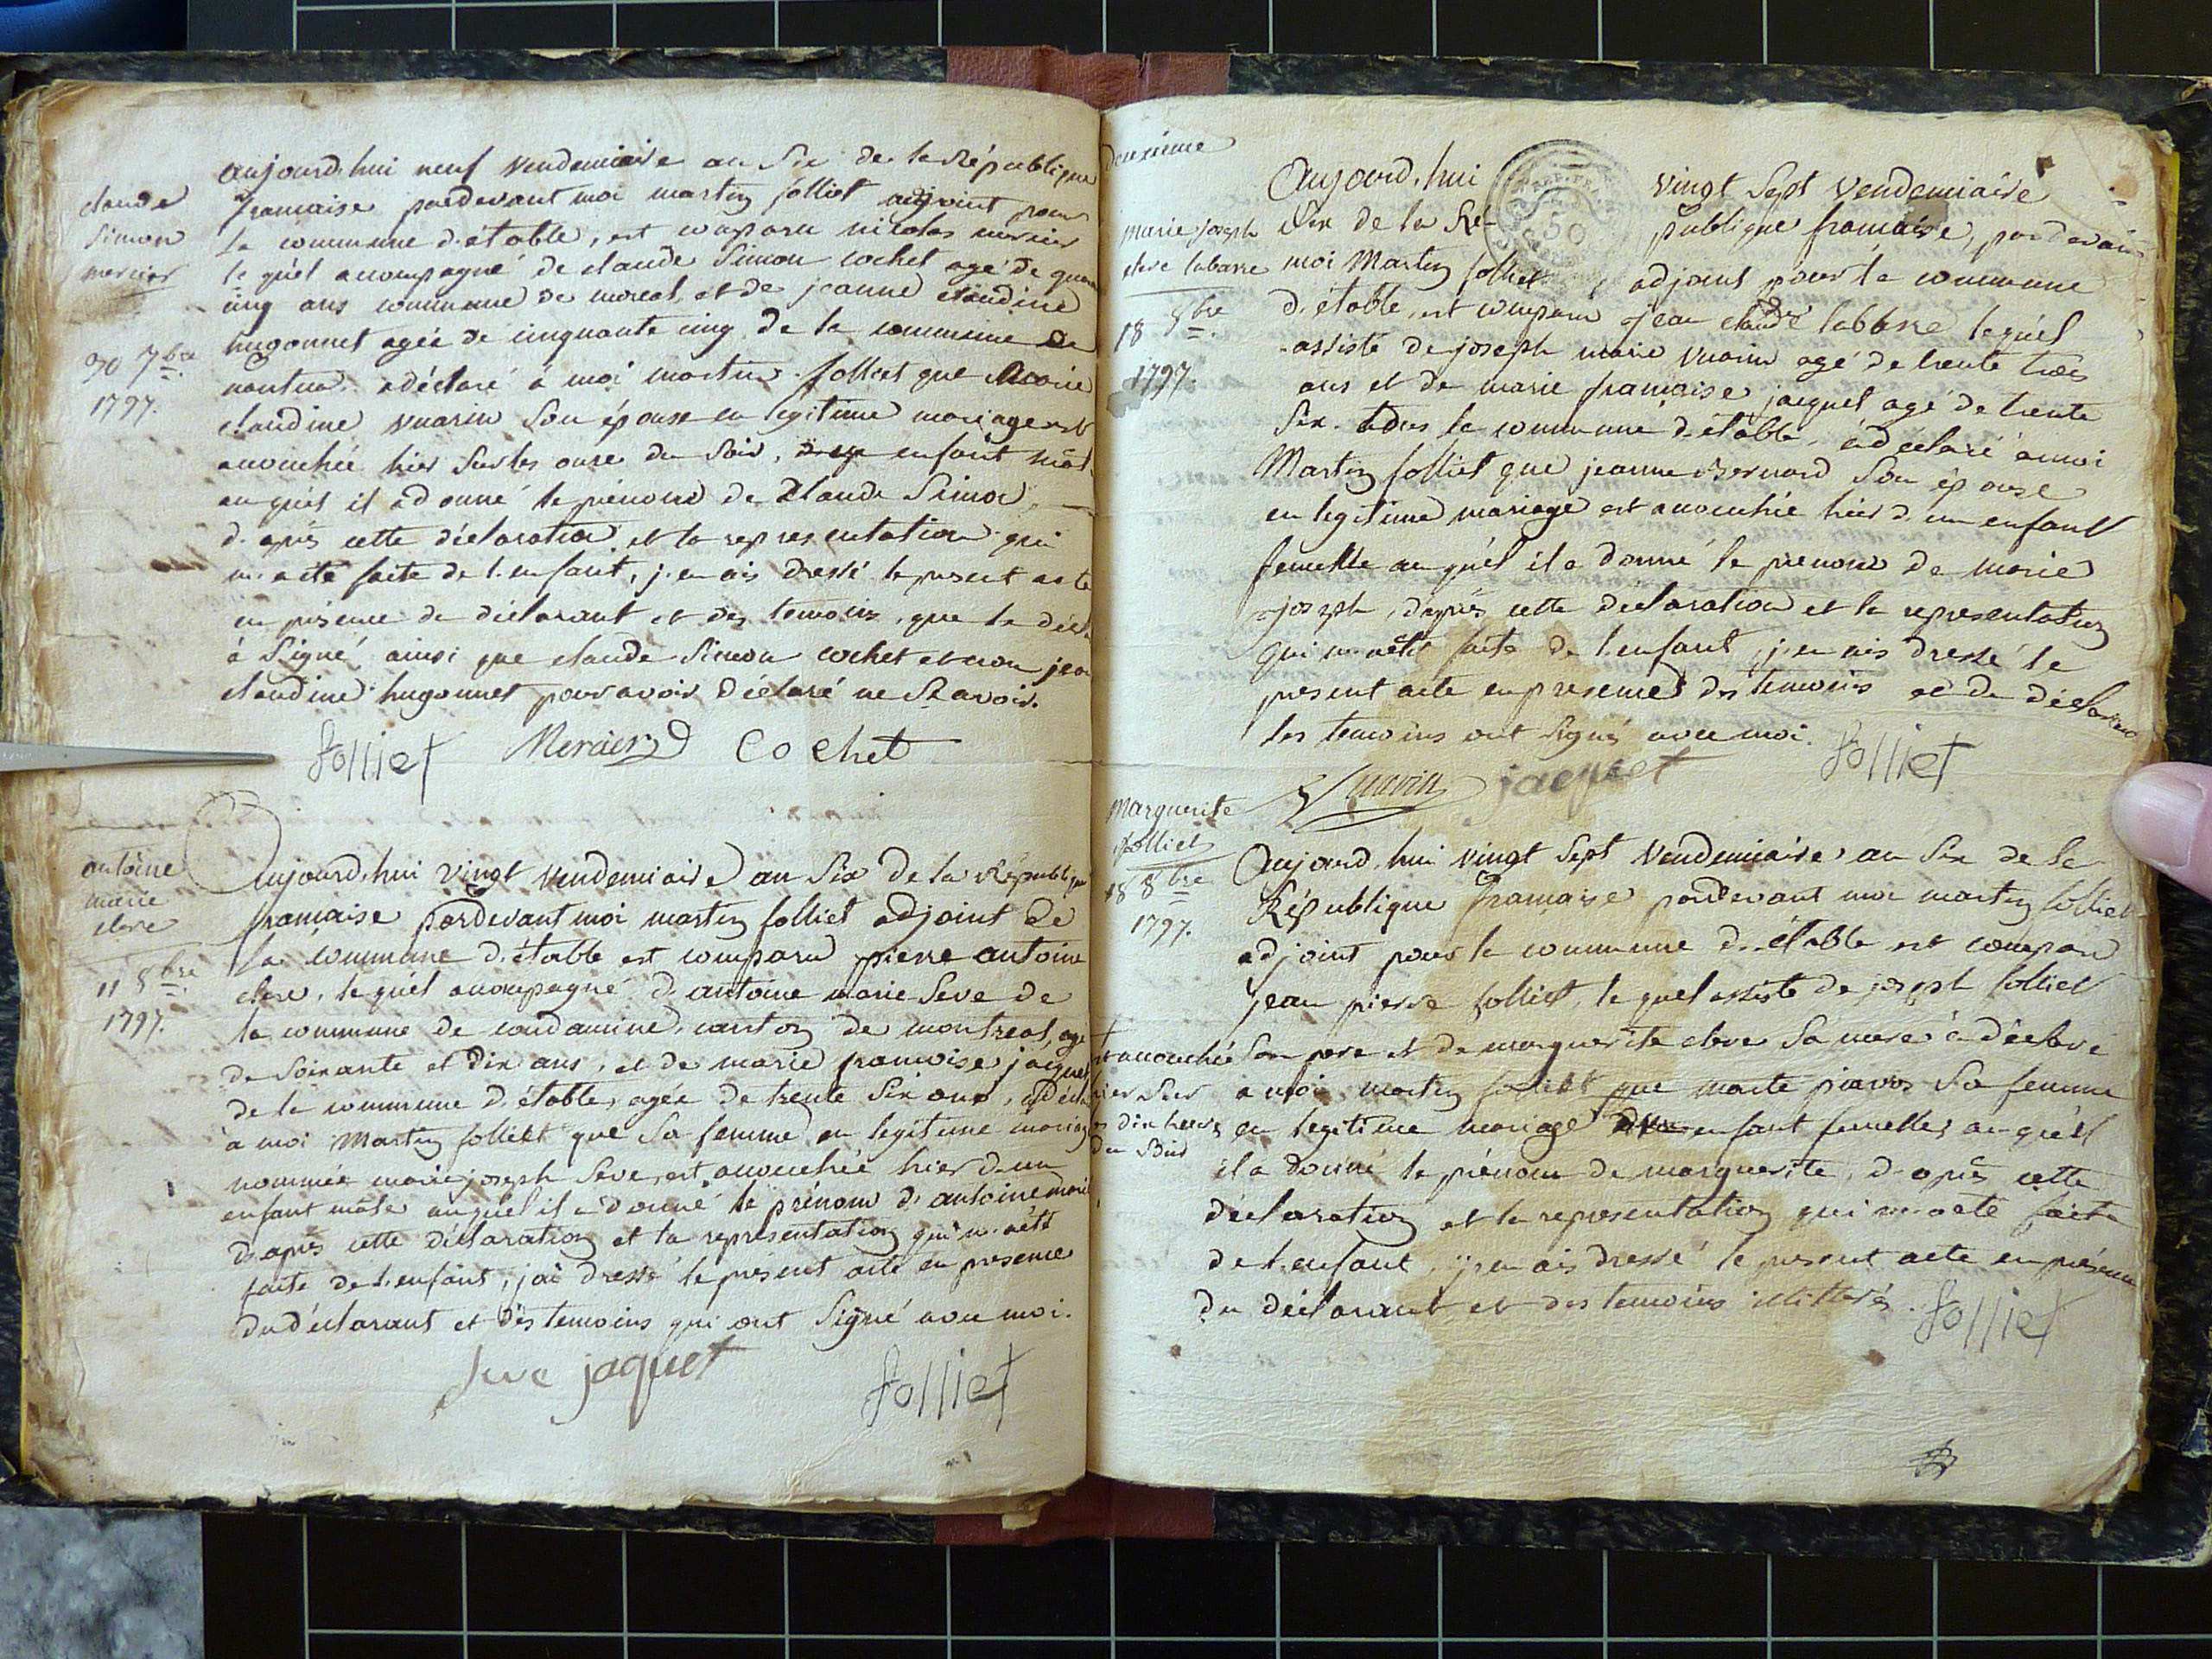 claude
Simon
mercier
30 7bre
1797.
aujourd'hui neuf vendemiaire an Six de la République
francaise pardevant moi martin folliet adjoint pour
la commune d'étable, est comparu nicolas mercier
le quel acompagné de claude Simon cochet agé de quar
cinq ans commune de et de jeanne claudine
hugonnet agée de cinquante cinq de la commune de
nantua a déclaré à moi martin folliet que marie
claudine vuarin Son épouse en legitime mariage est
acouchée hier Sur les onze du Soir, enfant mâl
au quel il a donné le prénom de Claude Simon
d'après cette déclaration et la representation qui
m'a eté faite de l'enfant, j'en ais dressé le present acte
en présence de déclarant et des temoins, que le décl
à Signé ainsi que claude Simon cochet et non jean
claudine hugonnet pour avoir déclaré ne Scavoir.
folliet Mercier Cochet
antoine
marie
cleve
11 8bre
1797.
Aujourd'hui vingt vendemiaire an Six de la Républiqu
francaise pardevant moi martin folliet adjoint de
la commune d'étable est comparu pierre antoine
le quel acompagné d'antoine marie Seve de
la commune de condamine, canton de montreal, agé
de Soixante et dix ans, et de marie francoise jacquet
de la commune d'étable, agée de trente Six ans, a décla
à moi Martin folliet que Sa femme en legitime mariag
nommée marie joseph Seve, est acouchée hier d'un
enfant mâle au quel il a donné le prénom d'antoine marie
d'après cette déclaration et la representation qui m'a eté
faite de l'enfant, j'ai dressé le présent acte en presence
du déclarant et des temoins qui ont Signé avec moi.
Seve jaquet folliet
deuxieme
Marie joseph
cleve labarre
18 8bre
1797.
Aujourd'hui vingt Sept vendemiaire
Six de la Ré- publique francaise, pardevan
50
moi Martin folliet adjoint pour la commune
d'étable, est comparu jean claude labarre lequel
assisté de joseph marie vuarin agé de trente trois
ans et de marie francoise jacquet agé de trente
Six. tous la commune d'étable a déclaré à moi
Martin folliet que jeanne Bernard Son épouse
en legitime mariage est acouchée hier d'un enfant
femelle au quel il a donné le prenom de marie
joseph, d'après cette declaration et la representation
qui m'a eté faite de l'enfant, j'en ais dressé le
present acte en presence des temoins et du déclarant
les temoins ont Signés avec moi. folliet
Vuarin jacquet
Marguerite
folliet
18 8bre
1797.
Aujourd'hui vingt Sept Vendemiaire, an Six de la
République francaise pardevant moi martin folliet
adjoint pour la commune d'étable est comparu
jean pierre folliet, le quel assisté de joseph folliet
Son pere et de marguerite cleve Sa mere a déclaré
à moi martin folliet que marie Sa femme
en legitime mariage enfant femelle, au quel
il a donné le prénom de marguerite, d'après cette
déclaration et la representation qui m'a eté faite
de l'enfant, j'en ais dressé le present acte en présence
du déclarant et des temoins illitterés. folliet
+
est acouchée
hier Sur
les dix heures
du Soir